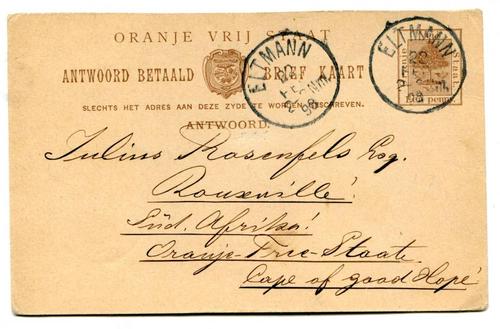 ORANJE VRIJ STAAT
ANTWOORD BETAALD BRIEF KAART
SLECHTS HET ADRES AAN DEZE ZYDE TE WORDEN GESCHREVEN.
ANTWOORD.
ELTMANN
20
98
ELTMANN
20
98
Julius Rosenfels Esq.
Rouxville!
Süd. Afrika!
Oranje-Free-Staate
Cape of good Hope!